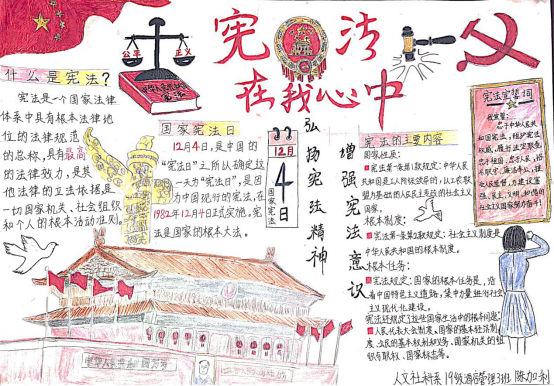 宪法
在我心中
公平 正义
什么是宪法？
宪法是一个国家法律
体系中具有根本法律地
位的法律规范
的总称，具有最高
的法律效力，是其
他法律的立法依据是
一切国家机关、社会组织
和个人的根本活动准则。
国家宪法日
12月4日，是中国的
“宪法日”之所以确定这
一天为“宪法日”，是因
为中国现行的宪法，在
1982年12月4日正式实施，宪
法是国家的根本大法。
12月
4
日
国家宪法
弘扬宪法精神
增强宪法意识
宪法的主要内容
国家性质：
宪法第一条第1款规定：中华人民
共和国是工人阶级领导的，以工农联
盟为基础的人民民主专政的社会主义
国家。
根本制度：
宪法第一条第2款规定：社会主义制度是
中华人民共和国的根本制度。
根本任务：
宪法规定：国家的根本任务是，沿
着中国特色主义道路，集中力量进行社会
主义现代化建设。
宪法还规定了这些国家生活中的根本问题：
人民代表大会制度、国家的基本经济制
度、公民的基本权利和义务、国家机关的组
织与职权、国家标志等。
宪法宣誓词
我宣誓：
忠于中华人民共
和国宪法，维护宪法
权威，履行法定职责
忠于祖国、忠于人民，恪
尽职守、廉洁奉公，接
人文社科系 19级酒店管理3班 陈加利